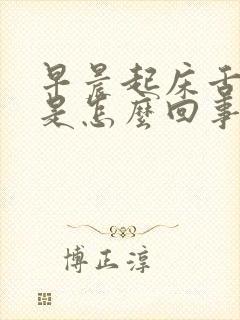 早晨起床舌
是怎麼回事
博正淳